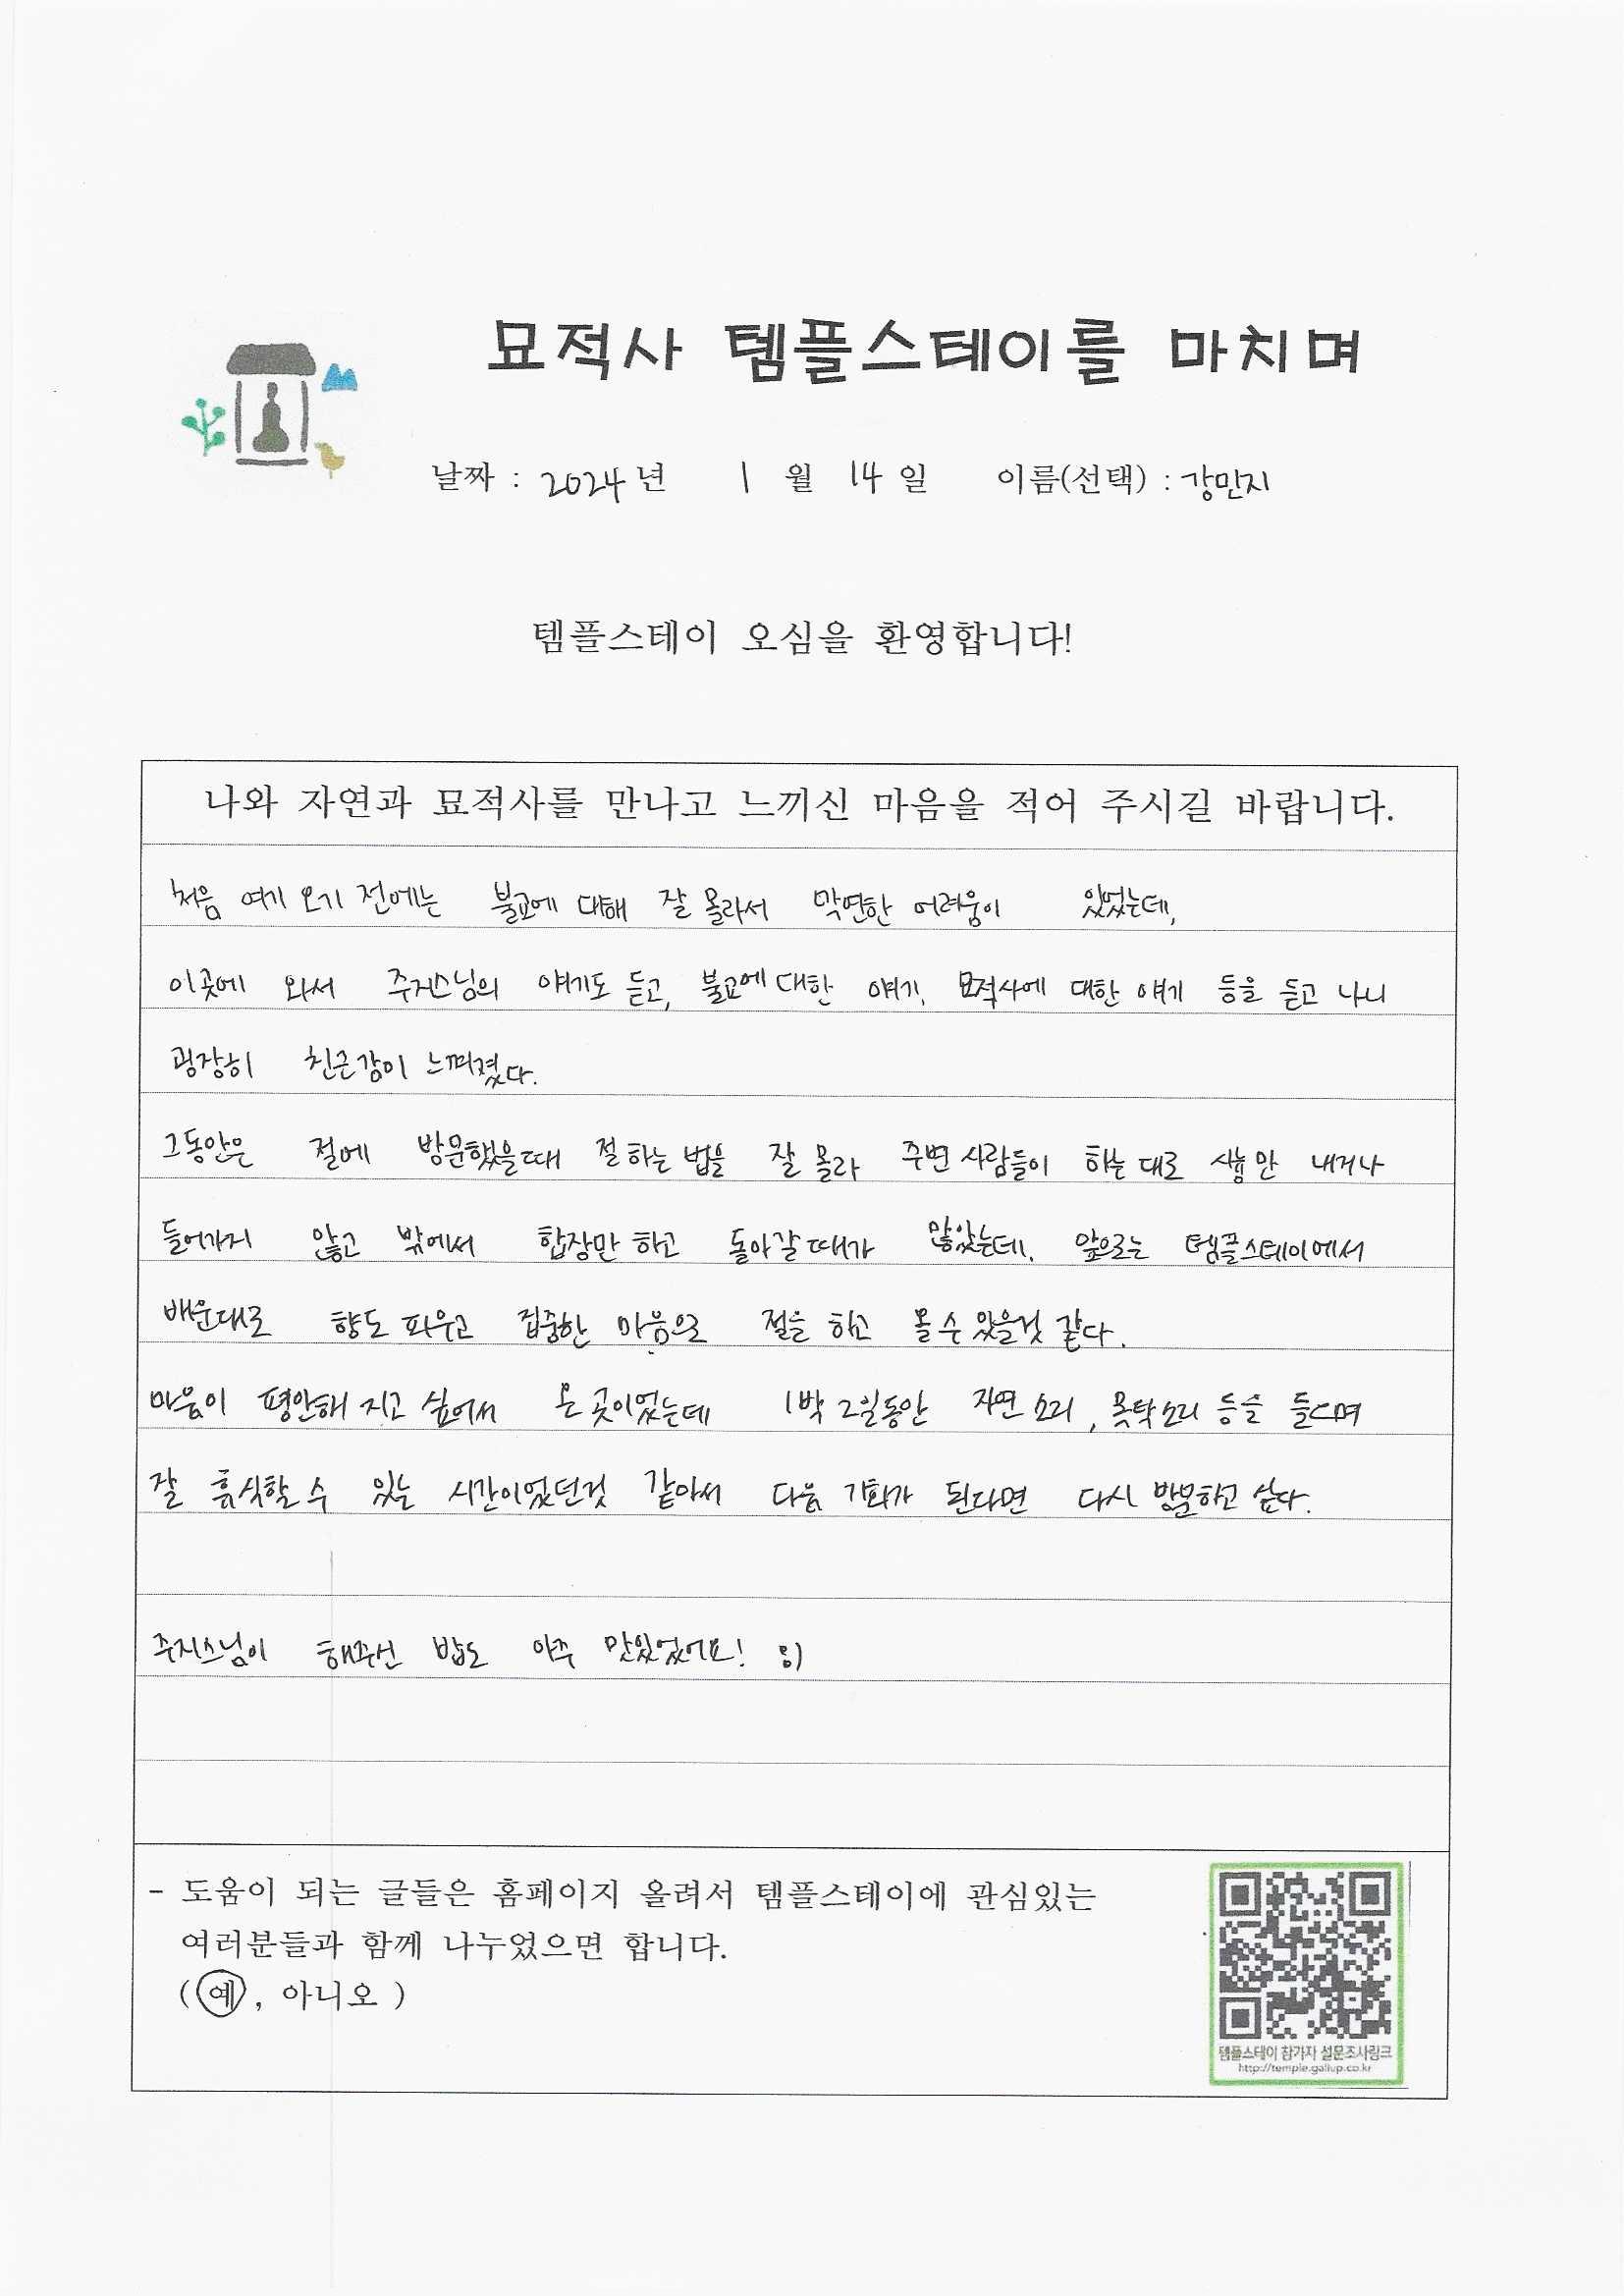 묘적사 템플스테이를 마치며
날짜 : 2024 년 1 월 14 일 이름(선택) : 강민지
템플스테이 오심을 환영합니다!
나와 자연과 묘적사를 만나고 느끼신 마음을 적어 주시길 바랍니다.
처음 여기 오기 전에는 불교에 대해 잘 몰라서 막연한 어려움이 있었는데,
이곳에 와서 주지스님의 얘기도 듣고, 불교에 대한 얘기, 묘적사에 대한 얘기 등을 듣고 나니
굉장히 친근감이 느껴졌다.
그동안은 절에 방문했을때 절 하는 법을 잘 몰라 주변 사람들이 하는 대로 시늉만 내거나
들어가지 않고 밖에서 합장만 하고 돌아갈 때가 많았는데, 앞으로는 템플스테이에서
배운대로 향도 피우고 집중한 마음으로 절을 하고 올 수 있을것 같다.
마음이 평안해 지고 싶어서 온 곳이었는데 1박 2일동안 자연 소리, 목탁소리 등을 들으며
잘 휴식할 수 있는 시간이었던것 같아서 다음 기회가 된다면 다시 방문하고 싶다.
주지스님이 해주신 밥도 아주 맛있었어요! :)
- 도움이 되는 글들은 홈페이지 올려서 템플스테이에 관심있는
여러분들과 함께 나누었으면 합니다.
( 예, 아니오 )
템플스테이 참가자 설문조사링크
http://temple.gallup.co.kr